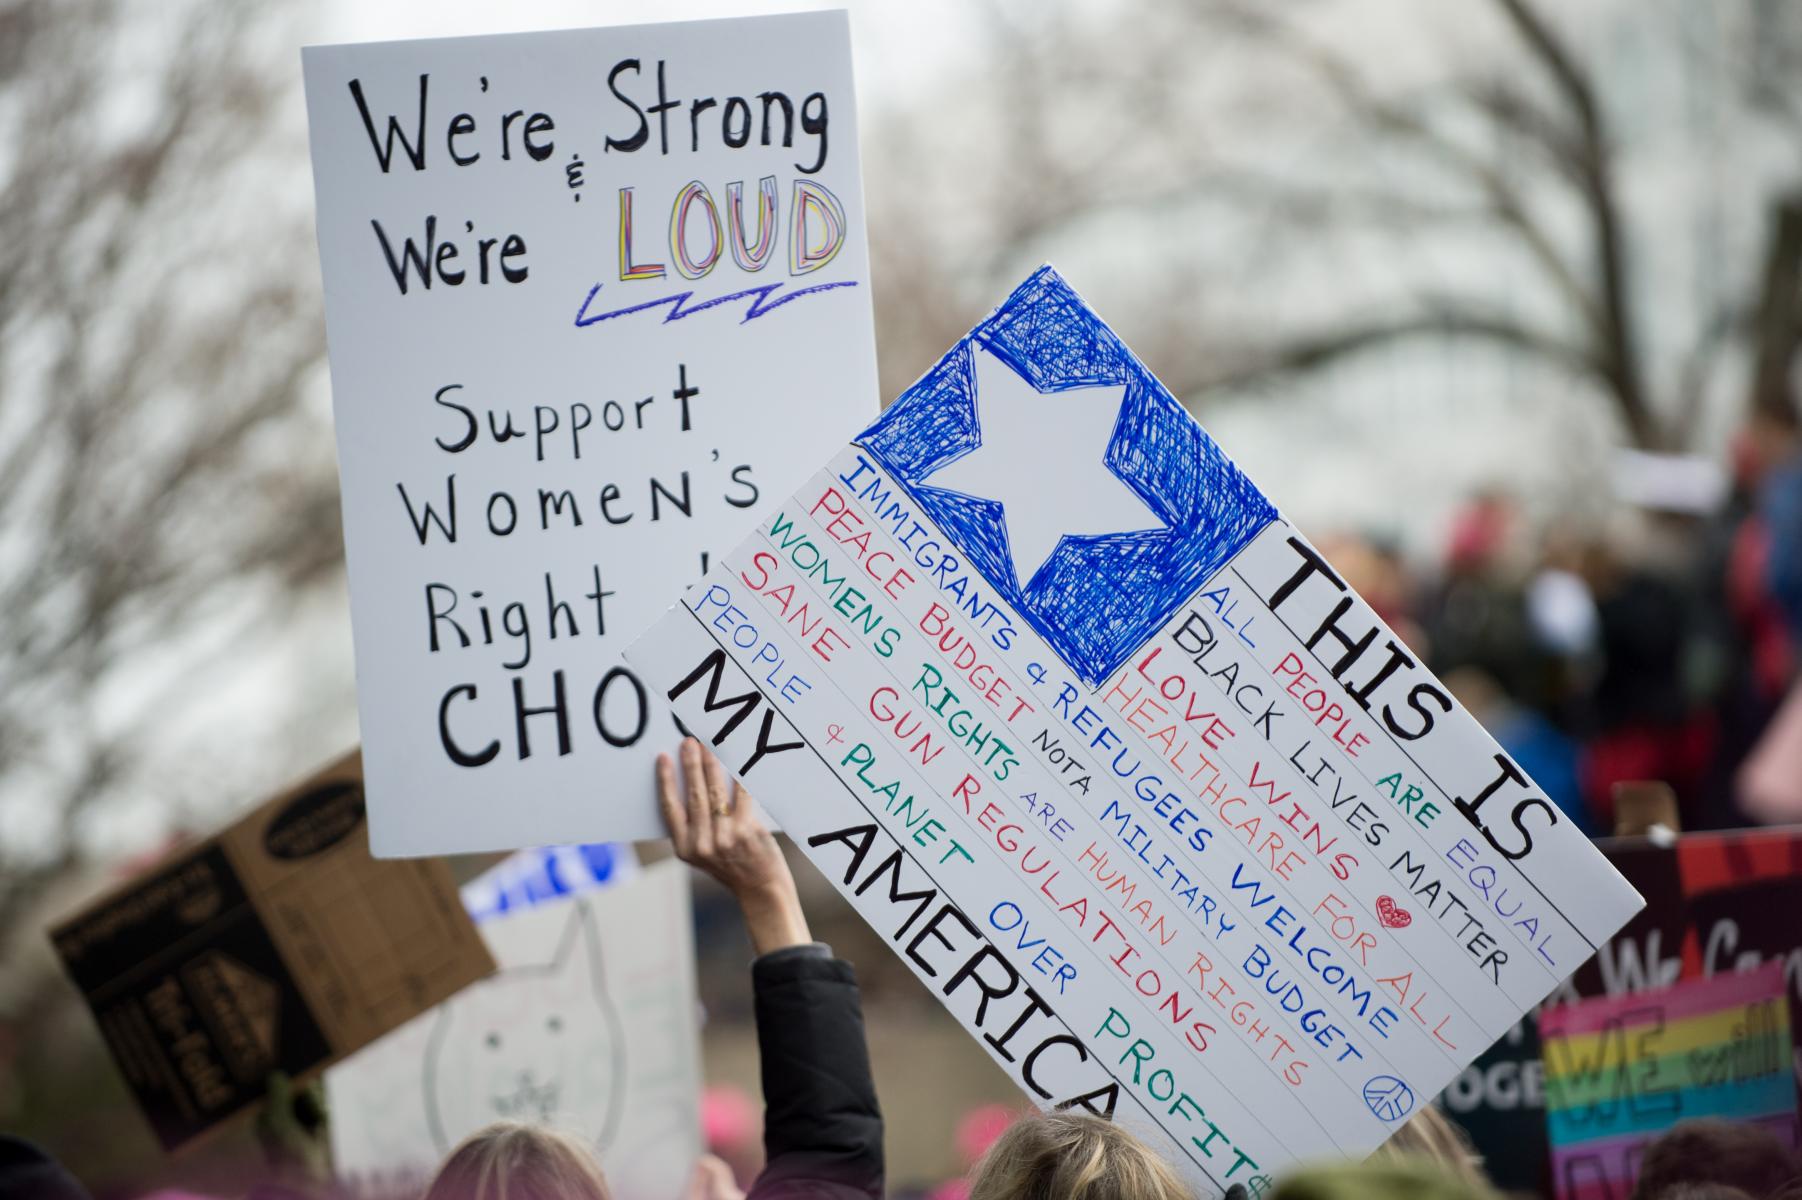 We're Strong
&
We're LOUD
Support
Women's
Right
CHO
THIS IS
ALL PEOPLE ARE EQUAL
BLACK LIVES MATTER
LOVE WINS
HEALTHCARE FOR ALL
IMMIGRANTS & REFUGEES WELCOME
PEACE BUDGET NOT A MILITARY BUDGET
WOMENS RIGHTS ARE HUMAN RIGHTS
SANE GUN REGULATIONS
PEOPLE & PLANET OVER PROFIT$
MY AMERICA
We Can
OGE
WE will